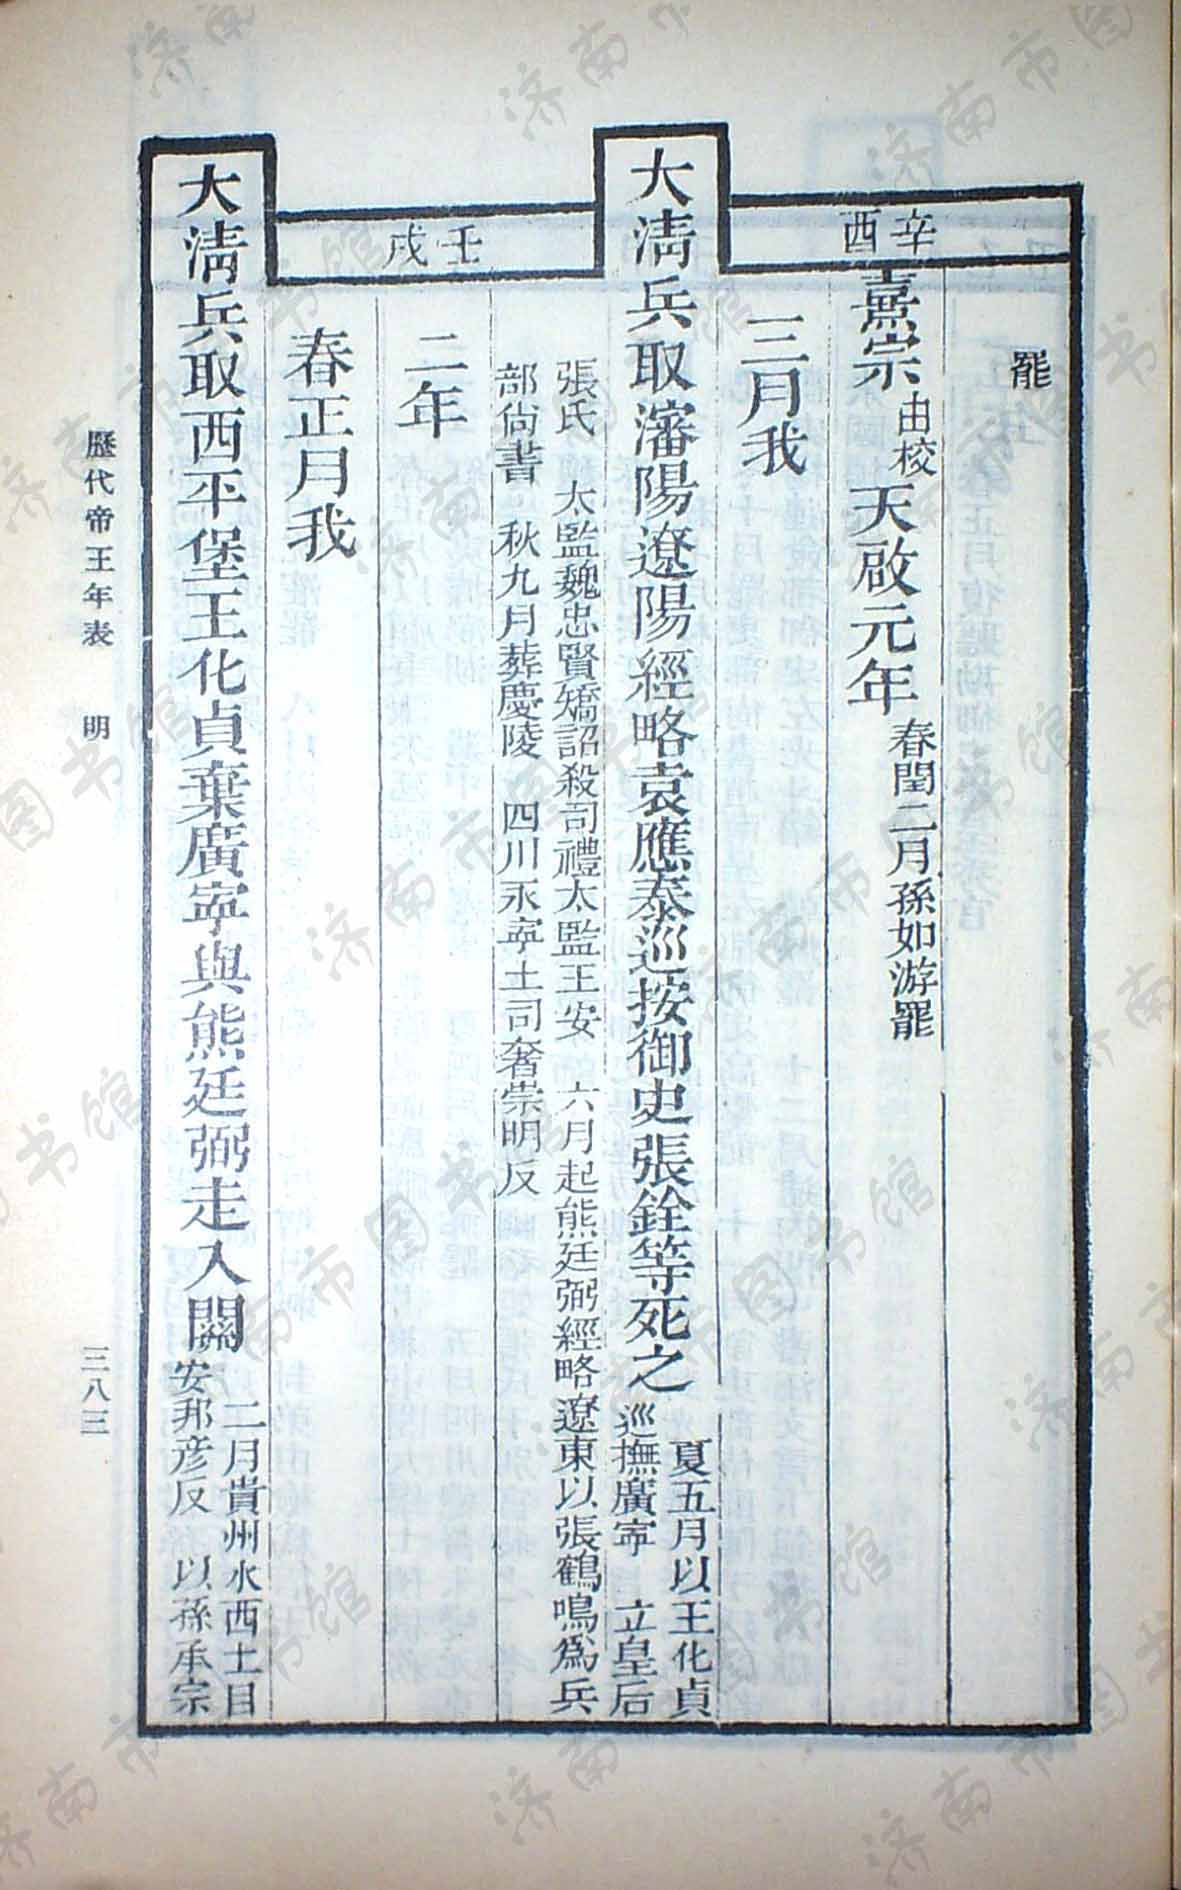 罷
辛酉
熹宗由校天啟元年春閏二月孫如游罷
三月我
大淸兵取瀋陽遼陽經略袁應泰巡按御史張銓等死之夏五月以王化貞
巡撫廣寧 立皇后
張氏 太監魏忠賢矯詔殺司禮太監王安 六月起熊廷弼經略遼東以張鶴鳴爲兵
部尚書 秋九月葬慶陵 四川永寧土司奢崇明反
壬戌
二年
春正月我
大淸兵取西平堡王化貞棄廣寧與熊廷弼走入關二月貴州水西土目
安邦彥反 以孫承宗
歷代帝王年表 明
三八三
济南市图书馆